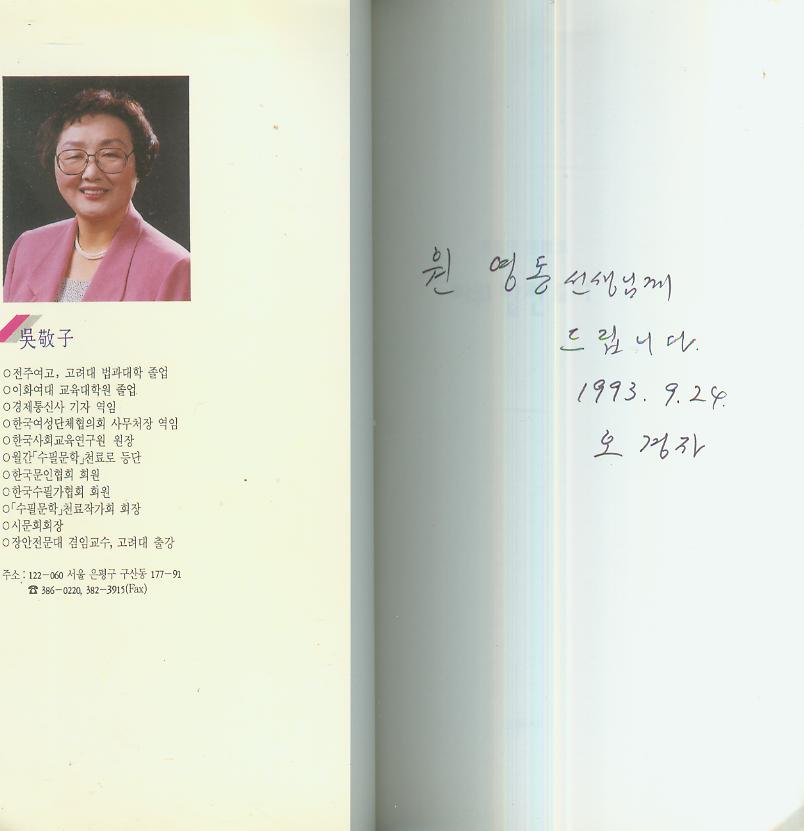 吳敬子
○전주여고, 고려대 법과대학 졸업
○이화여대 교육대학원 졸업
○경제통신사 기자 역임
○한국여성단체협의회 사무처장 역임
○한국사회교육연구원 원장
○월간「수필문학」천료로 등단
○한국문인협회 회원
○한국수필가협회 회원
○「수필문학」천료작가회 회장
○시문회회장
○장안전문대 겸임교수, 고려대 출강
주소 : 122-060 서울 은평구 구산동 177-91
☎ 386-0220, 382-3915(Fax)
원 영동 선생님께
드립니다.
1993. 9. 24.
오 경자